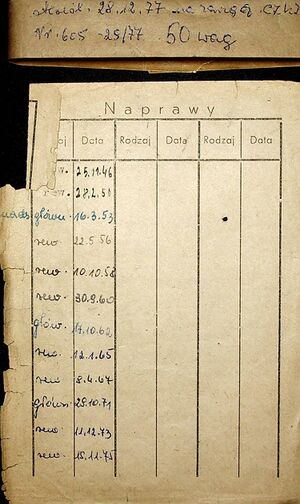 28.12.77 na
Nr. 605-25/77 50 wag
Naprawy
aj Data Rodzaj Data Rodzaj Data
w. 25.11.46
w. 28.2.51
główn 16.3.53
rew 22.5.56
rew. 10.10.58
rew. 30.9.60
głów. 17.10.62
rew. 12.1.65
rew. 8.4.67
główn 29.10.71
rew 11.12.73
rew. 15.11.75